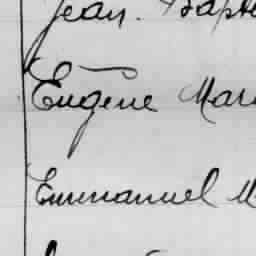 Jean. Bapt
Eugène Mar
Emmanuel M